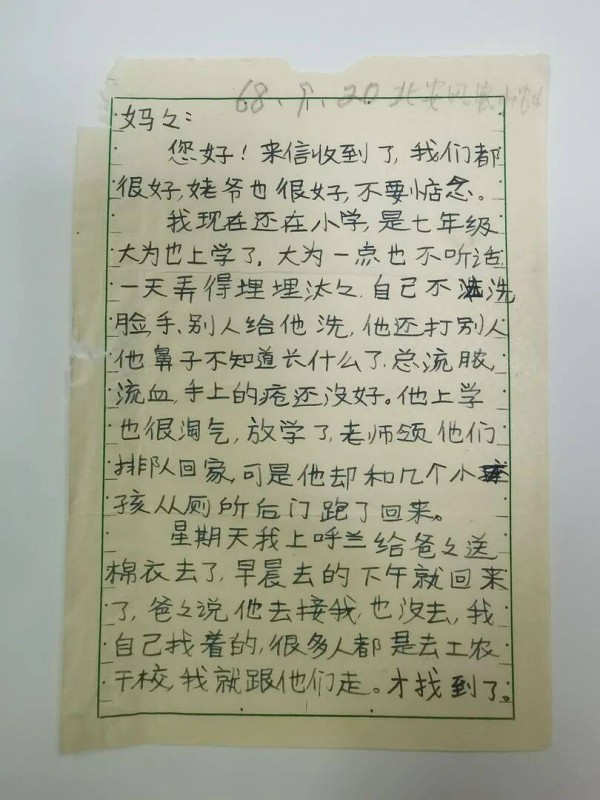 68.9.20 北安
妈々：
您好！来信收到了，我们都
很好，姥爷也很好，不要惦念。
我现在还在小学，是七年级
大为也上学了，大为一点也不听话
一天弄得埋埋汰々，自己不洗
脸，手、别人给他洗，他还打别人
他鼻子不知道长什么了，总流脓，
流血，手上的疮还没好。他上学
也很淘气，放学了，老师领他们
排队回家，可是他却和几个小
孩从厕所后门跑了回来。
星期天我上呼兰给爸々送
棉衣去了，早晨去的下午就回来
了，爸々说他去接我，也没去，我
自己找着的，很多人都是去工农
干校，我就跟他们走。才找到了。